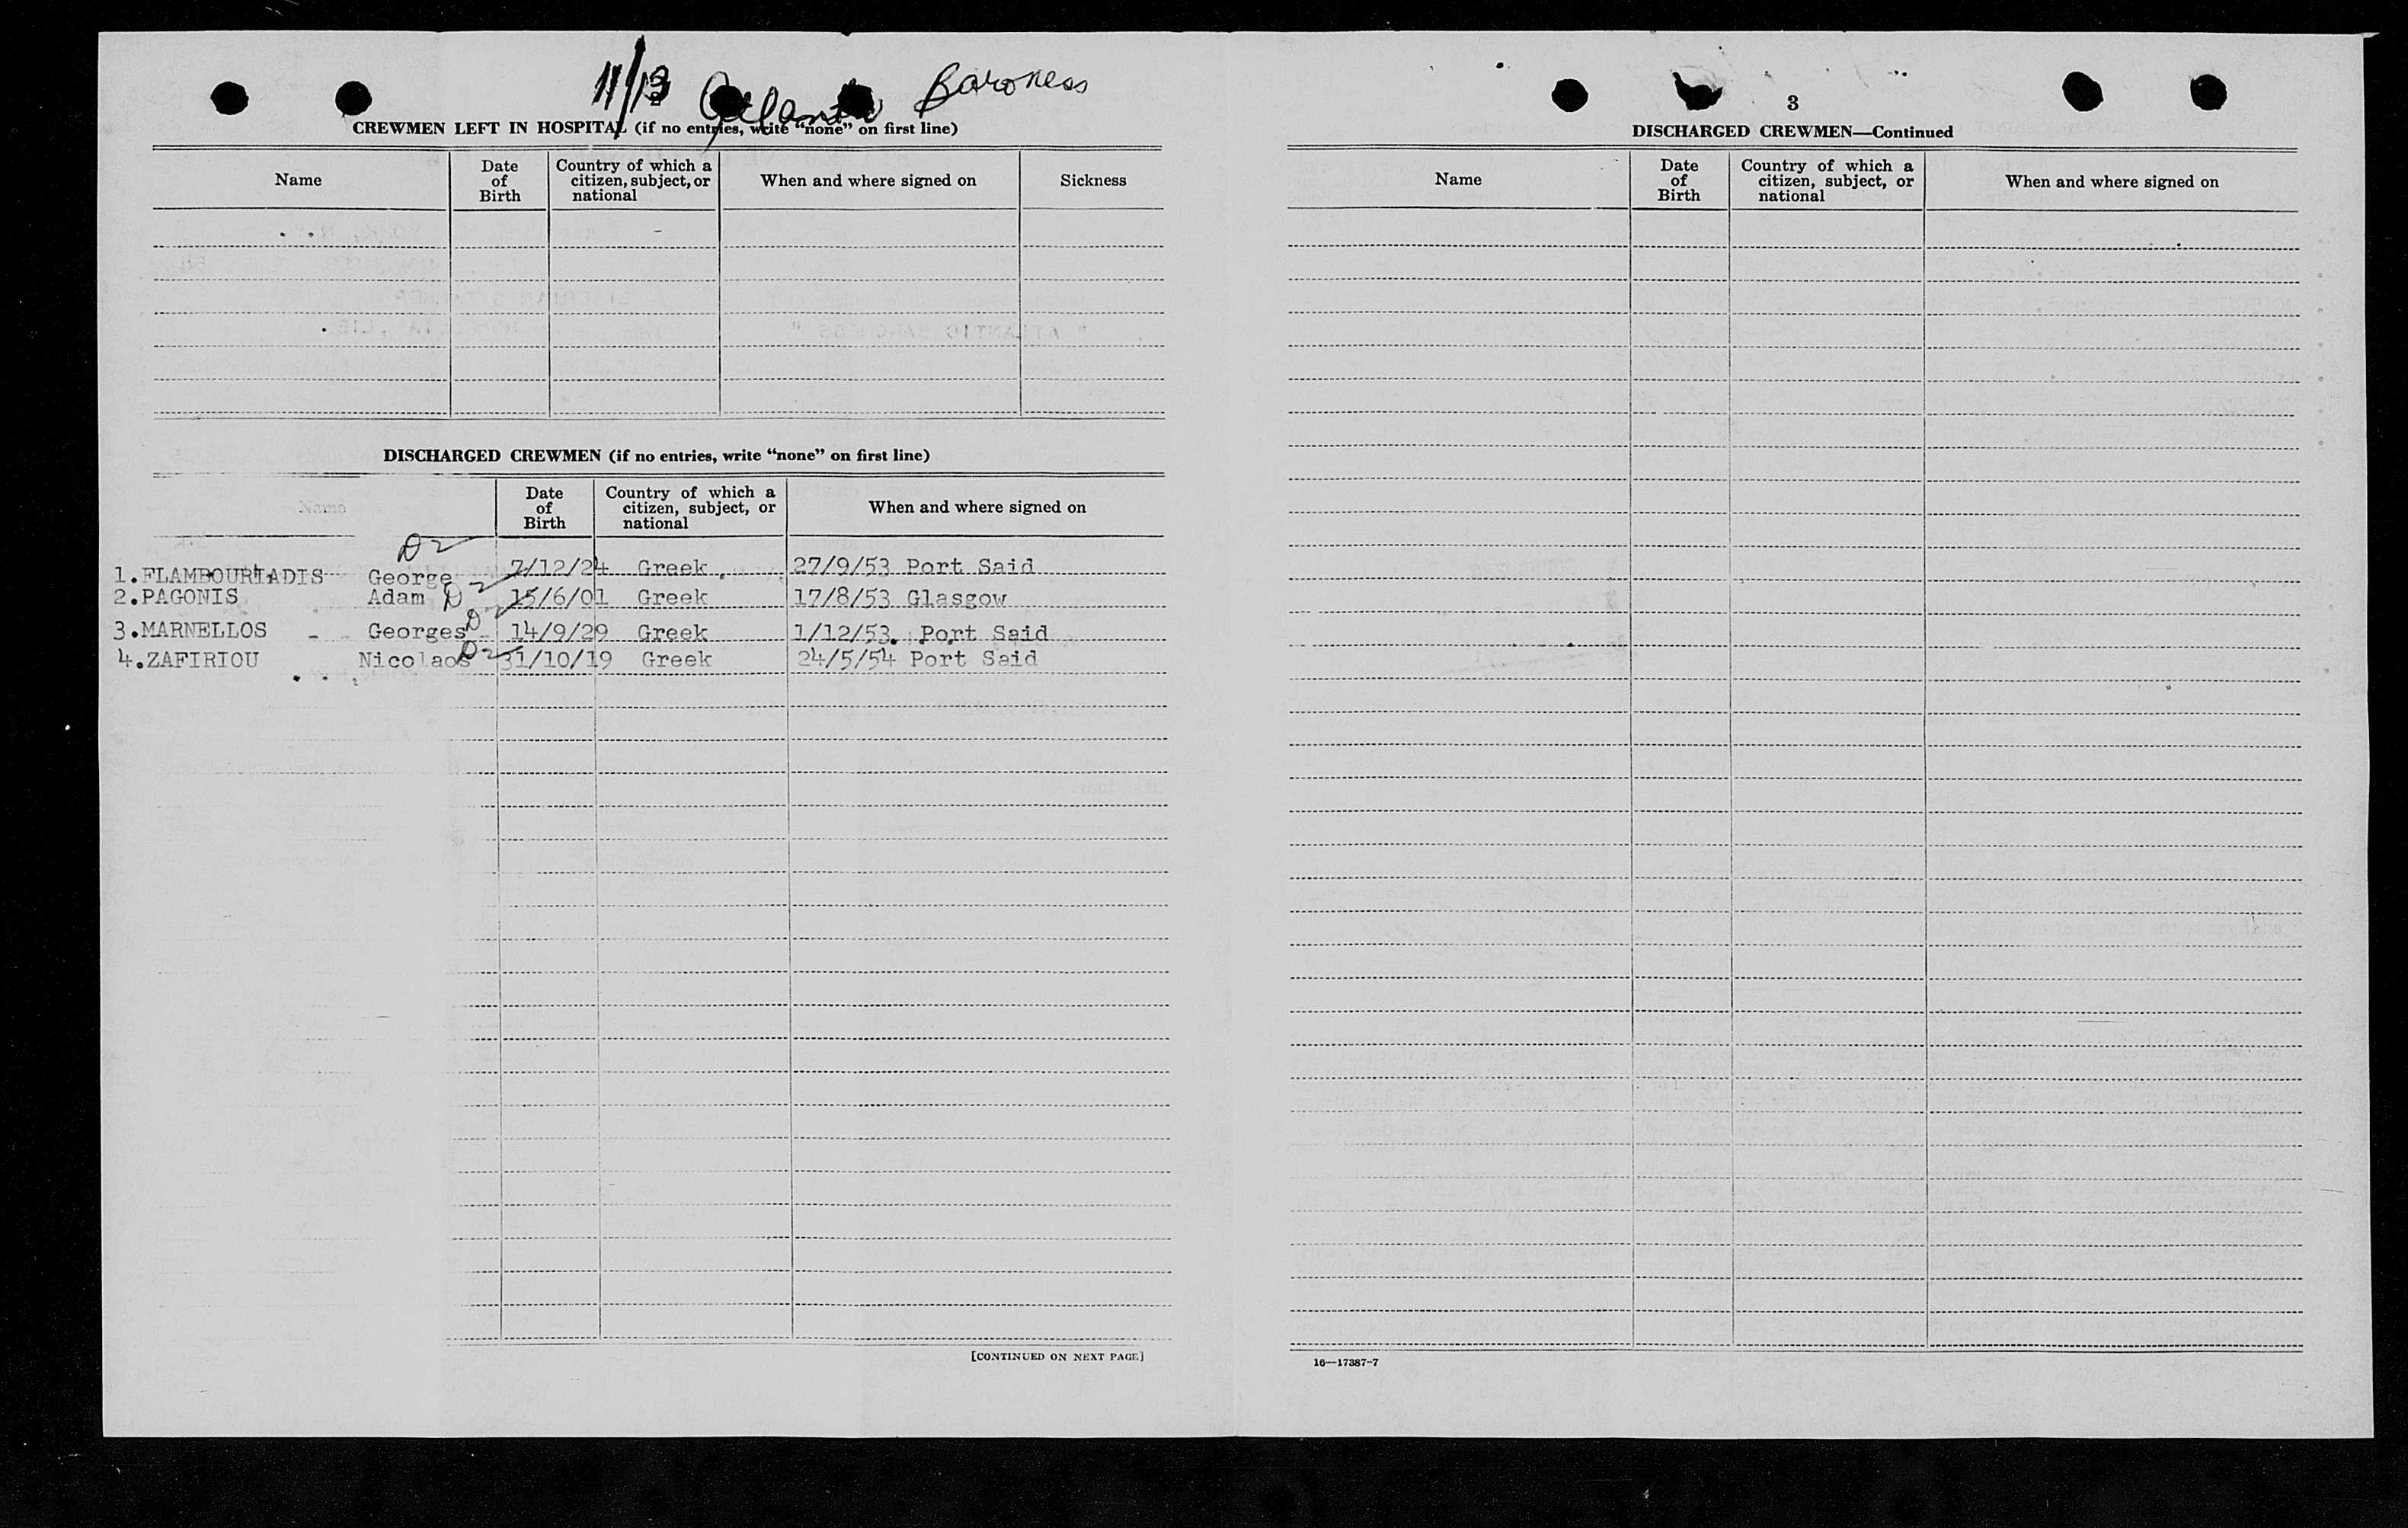 11/13 Atlantic Baroness
CREWMEN LEFT IN HOSPITAL (if no entries, write “none” on first line)
Name Date of Birth Country of which a citizen, subject, or national When and where signed on Sickness
DISCHARGED CREWMEN (if no entries, write “none” on first line)
Name Date of Birth Country of which a citizen, subject, or national When and where signed on
D2
1.FLAMBOURIADIS George 7/12/24 Greek 27/9/53 Port Said
2.PAGONIS Adam D2 15/6/01 Greek 17/8/53 Glasgow
3.MARNELLOS Georges D2 14/9/29 Greek 1/12/53. Port Said
4.ZAFIRIOU Nicolaos D2 31/10/19 Greek 24/5/54 Port Said
[CONTINUED ON NEXT PAGE]
3
DISCHARGED CREWMEN—Continued
Name Date of Birth Country of which a citizen, subject, or national When and where signed on
16—17387-7